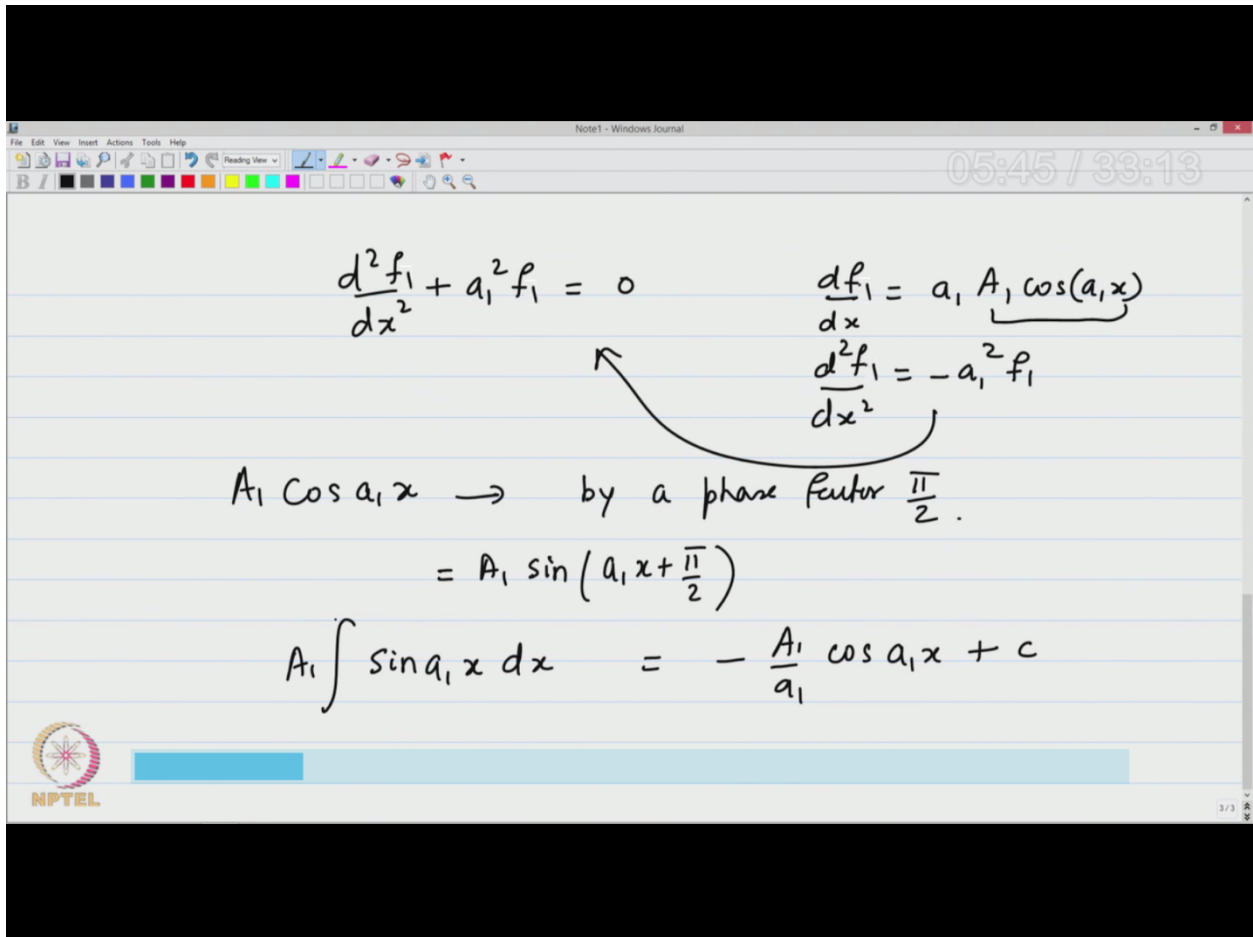 Note1 - Windows Journal
File Edit View Insert Actions Tools Help
Reading View
05:45 / 33:13
B I
d²f₁/dx² + a₁²f₁ = 0
df₁/dx = a₁ A₁ cos(a₁x)
d²f₁/dx² = -a₁² f₁
A₁ cos a₁x → by a phase factor π/2.
= A₁ sin(a₁x + π/2)
A₁ ∫ sin a₁x dx = - A₁/a₁ cos a₁x + c
NPTEL
3/3